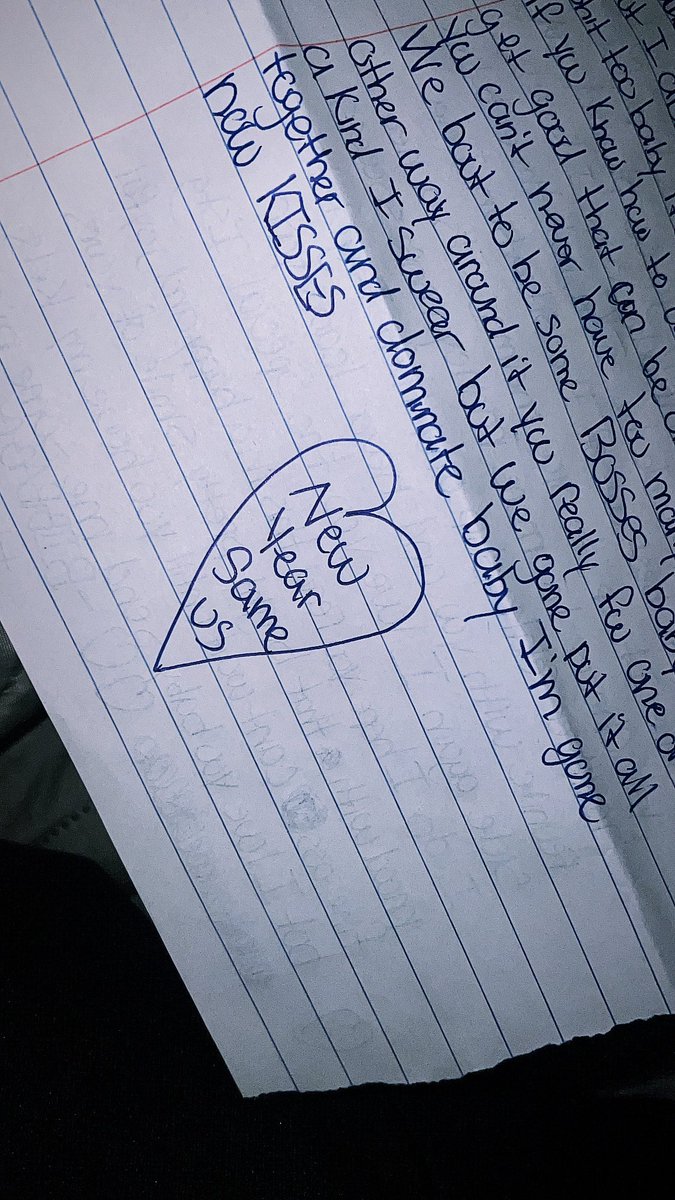 but I a
shit too baby i
if you know how to
get good that can be
you can't never have too many baby
We bout to be some BOSSES
other way around it you really fw one of
a kind I swear but we gone put it all
together and dominate baby I'm gone
now KISSES
New
Year
Same
us